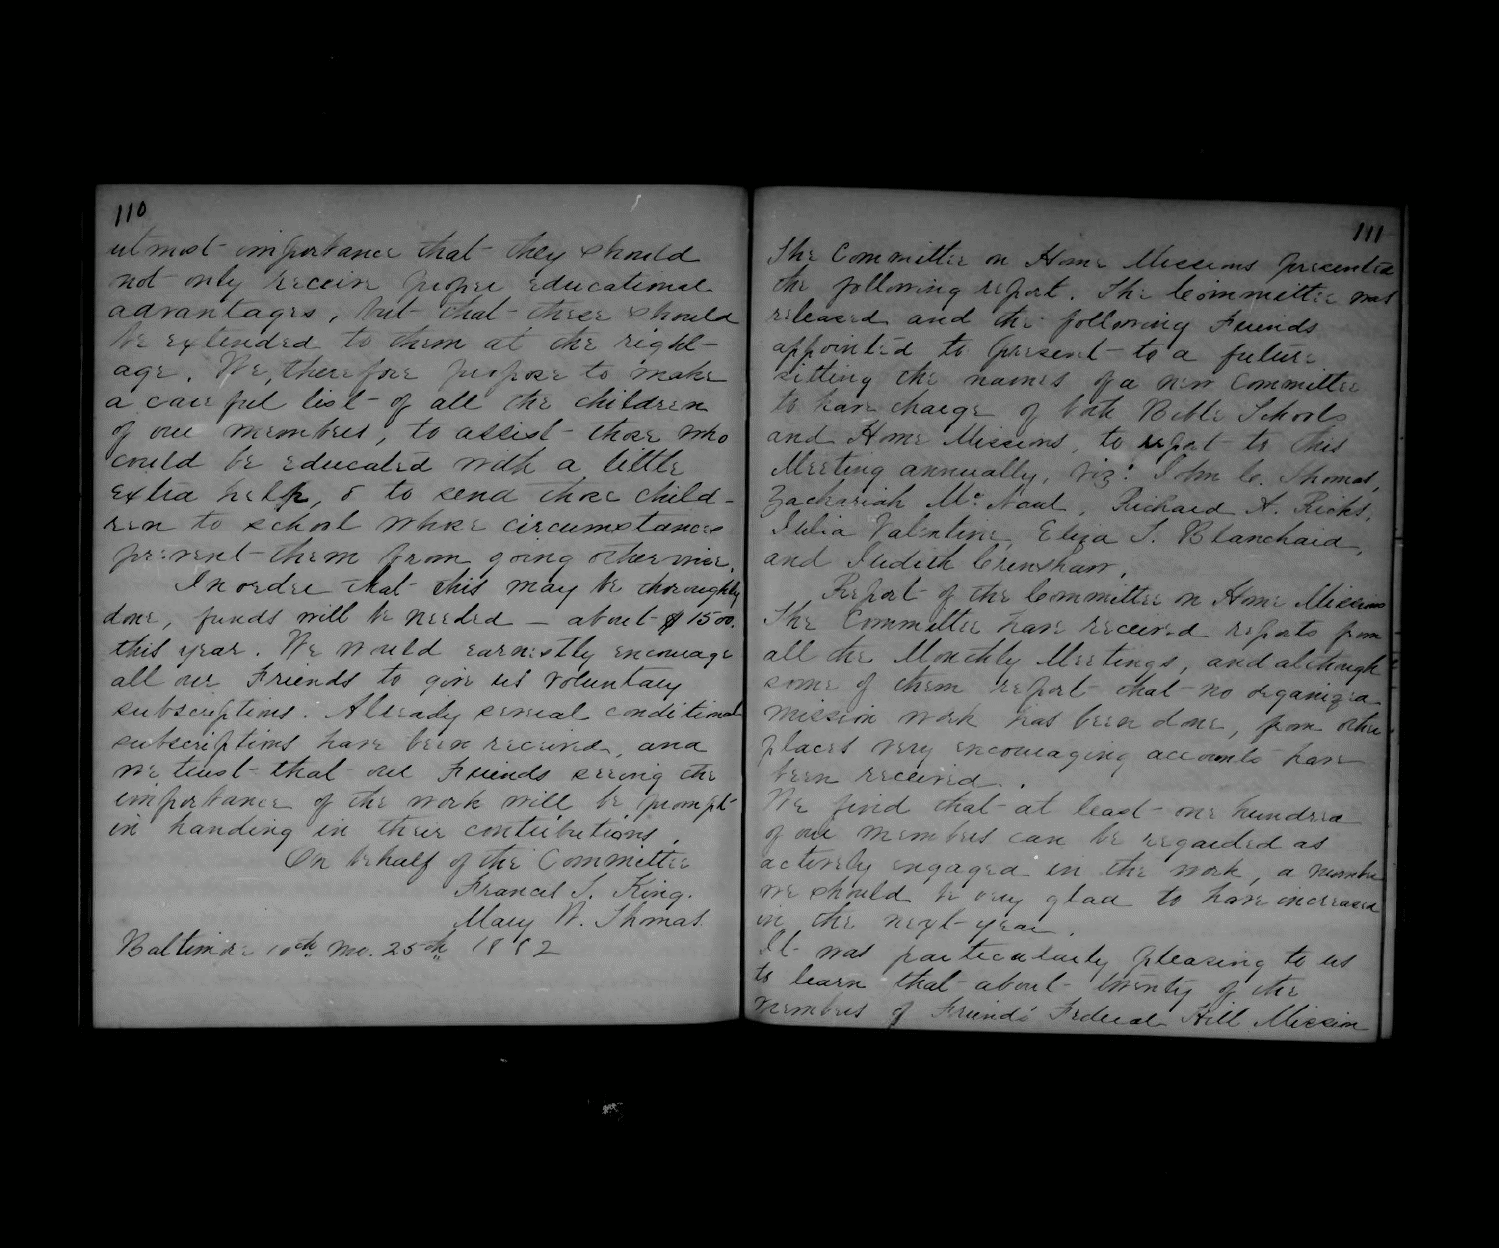 110
utmost importance that they should
not only receive proper educational
advantages, but that these should
be extended to them at the right
age. We, therefore propose to make
a careful list of all the children
of our members, to assist those who
could be educated with a little
extra help, & to send those child-
ren to school whose circumstances
prevent them from going otherwise.
In order that this may be thoroughly
done, funds will be needed – about $1500.
this year. We would earnestly encourage
all our Friends to give us voluntary
subscriptions. Already several conditional
subscriptions have been received, and
we trust that our Friends seeing the
importance of the work will be prompt
in handing in their contributions.
On behalf of the Committee
Francis T. King.
Mary W. Thomas.
Baltimore 10th mo. 25th 1882
111
The Committee on Home Missions presented
the following report. The Committee was
released and the following Friends
appointed to present to a future
sitting the names of a new Committee
to have charge of both Bible Schools
and Home Missions, to report to this
Meeting annually, viz: John C. Thomas,
Zachariah McNaul, Richard H. Ricks,
Julia Valentine, Eliza S. Blanchard,
and Judith Crenshaw.
Report of the Committee on Home Missions
The Committee have received reports from
all the Monthly Meetings, and although
some of them report that no organized
mission work has been done, from other
places very encouraging accounts have
been received.
We find that at least one hundred
of our members can be regarded as
actively engaged in the work, a number
we should be very glad to have increased
in the next year.
It was particularly pleasing to us
to learn that about twenty of the
members of Friends' Federal Hill Mission